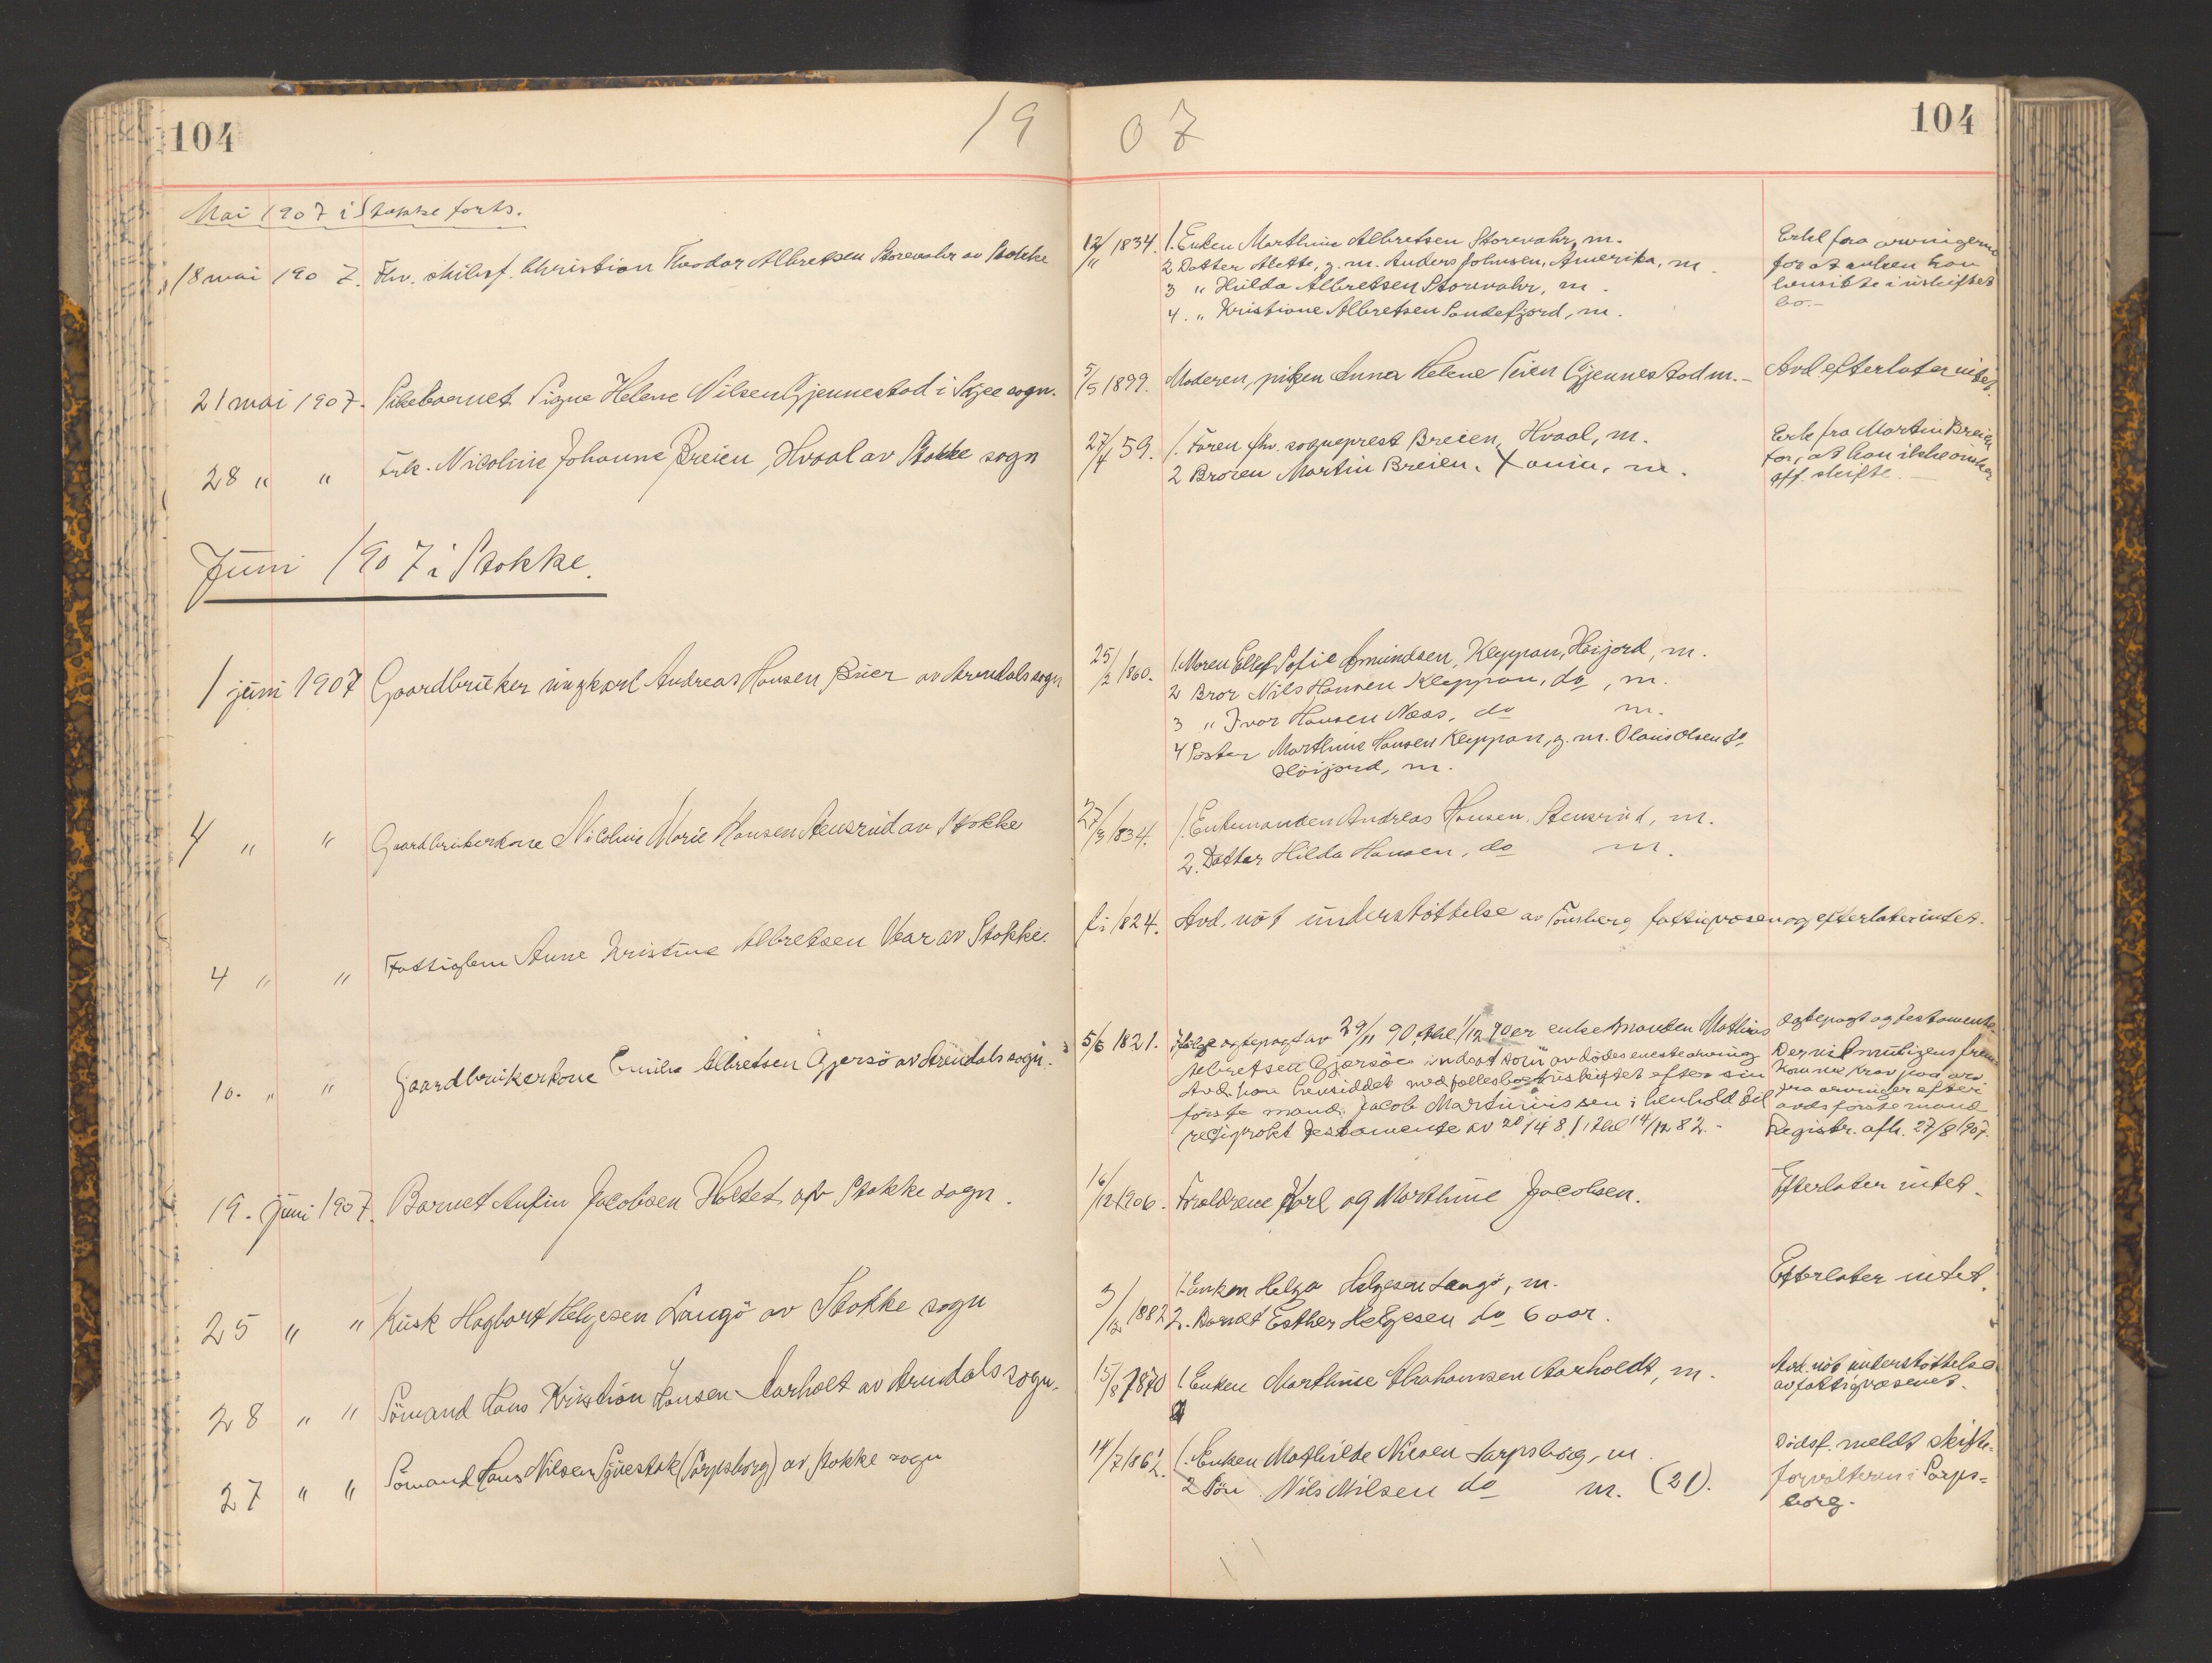 104
19 07
104
Mai 1907 i Stokke forts.
18 mai 1907. Fhv. skibsf. Christian Theodor Albretsen Storevahr av Stokke
12/11 1834. 1. Enken Marthine Albretsen Storevahr, m.
2 Datter Alette, g. m. Anders Johnsen, Amerika, m.
3 " Hilda Albretsen Storevahr, m.
4. " Kristiane Albretsen Sandefjord, m.
Erkl fra arvingerne
for at enken kan
hensitte i uskiftet
bo.-
21 mai 1907. Pikebarnet Signe Helene Nilsen Gjennestad i Skjee sogn.
5/5 1899. Moderen, piken Anna Helene Teien Gjennestad m.-
Avd efterlater intet.
28 " " Frk. Nicoline Johanne Breien, Hvaal av Stokke sogn
27/4 59. 1. Faren fhv. sogneprest Breien, Hvaal, m.
2 Broren Martin Breien. Xania, m.
Erk fra Martin Breien
for, at han ikke ønsker
off. skifte.-
Juni 1907 i Stokke.
1 juni 1907 Gaardbruker ungkarl Andreas Hansen Buer av Arendals sogn
25/2 1860. 1. Moren Ellef Sofie Amundsen, Kleppan, Høijord, m.
2 Bror Nils Hansen Kleppan, do, m.
3 " Ivar Hansen Næss, do m.
4 Søster Marthine Hansen Kleppan, g. m. Olaus Olsen do
Høijord, m.
4 " " Gaardbrukerkone Nicoline Marie Hansen Stensrud av Stokke
27/3 1834. 1. Enkemanden Andreas Hansen Stensrud, m.
2. Datter Hilda Hansen, do m.
4 " " Fattiglem Anne Kristine Albretsen Vear av Stokke.
fi 1824. Avd. nøt understøttelse av Tønsberg fattigvæsen og efterlater intet.
10. " " Gaardbrukerkone Emilie Albretsen Gjersø av Arendals sogn.
5/6 1821. Ifølge egtepagt av 29/11 90 thl. 1/12 90 er enkemanden Mathias
Albretsen Gjersøe indsat som avdødes eneste arving
Avd. har hensiddet med fællesboet uskiftet efter sin
første mand Jacob Martiniussen i henhold til
resiprokt testamente av 20/4 81, thl 14/12 82.-
Egtepagt og testamente.
Der vil muligens frem
komme krav paa arv
fra arvinger efter
avds første mand
Registr. afh. 27/8 1907.
19. juni 1907. Barnet Anfin Jacobsen Holtet av Stokke sogn.
16/12 1906. Foreldrene Karl og Marthine Jacobsen.
Efterlater intet.
25 " " Kusk Hagbart Helgesen Langø av Stokke sogn
3/12 1882 1. Enken Helga Helgesen Langø, m.
2. Barnet Esther Helgesen do 6 aar.
Efterlater intet.
28 " " Sømand Hans Kristian Hansen Aarholt av Arendals sogn.
15/8 1870 1. Enken Marthine Abrahamsen Aarholdt, m.
Avd. nøt understøttelse
av fattigvæsenet.
27 " " Sømand Hans Nilsen (Sarpsborg) av Stokke sogn
14/7 1862. 1. Enken Mathilde Nilsen Sarpsborg, m.
2 Søn Nils Nilsen do m. (21).
Dødsf. meldt skifte-
forvalteren i Sarps=
borg.